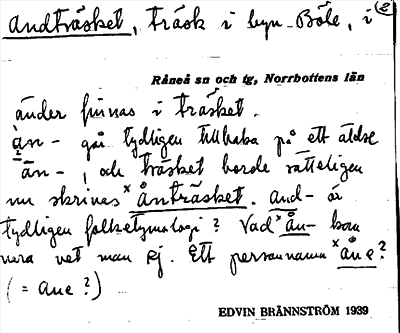 andträsket, träsk i byn Böle, i (2)
Råneå sn och tg, Norrbottens län
änder finnas i träsket.
än- går tydligen tillbaka på ett äldre
ān-, och träsket borde rätteligen
nu skrivas ˣånträsket. and- är
tydligen folketymologi? Vad ˣån- kan
vara vet man ej. Ett personnamn ˣåne?
(= ane?)
EDVIN BRÄNNSTRÖM 1939